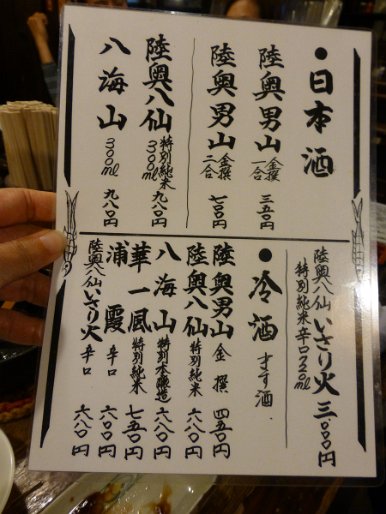 ●日本酒
陸奥男山 金撰 一合 三五〇円
陸奥男山 金撰 二合 七〇〇円
陸奥八仙 特別純米 300ml 九八〇円
八海山 300ml 九八〇円
陸奥八仙 いさり火 三、〇〇〇円
特別純米 辛口 720ml
●冷酒 ます酒
陸奥男山 金撰 四五〇円
陸奥八仙 特別純米 六八〇円
八海山 特別本醸造 六八〇円
華一風 特別純米 七五〇円
浦霞 辛口 六〇〇円
陸奥八仙 いさり火 辛口 六八〇円